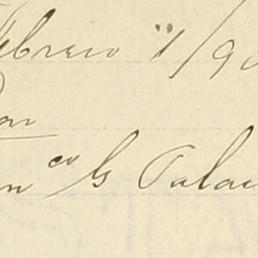 Febrero "1/90
Don
n co G Palau